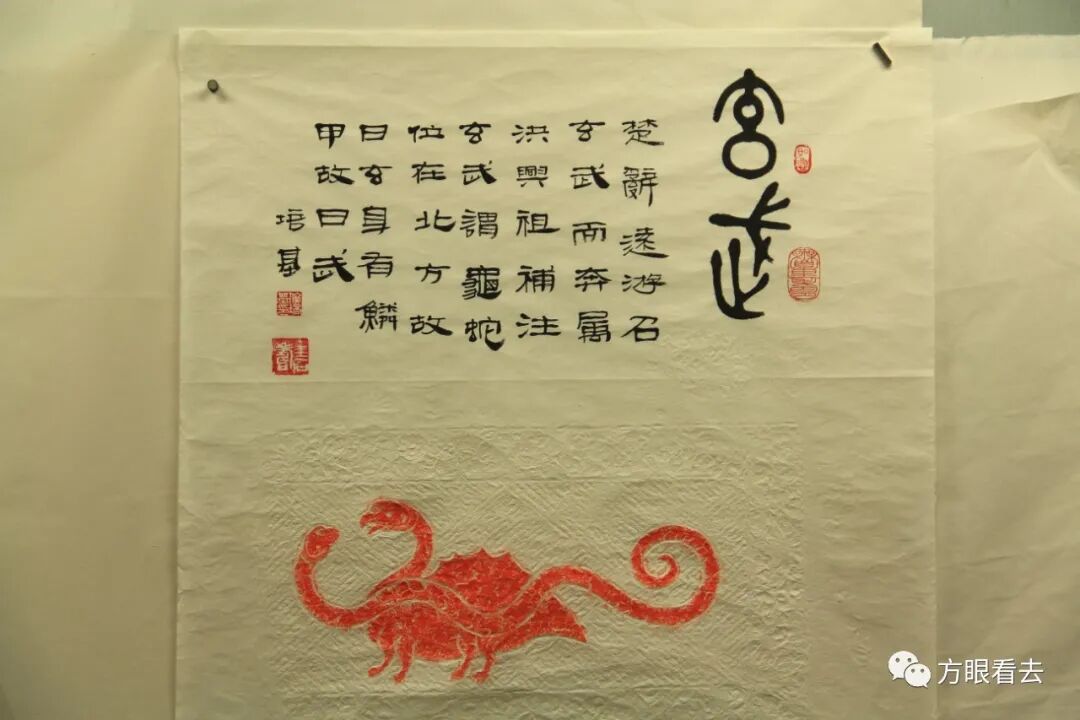 武
楚辭遠游召
玄武而奔屬
洪興祖補注
玄武謂龜蛇
位在北方故
曰玄身有鱗
甲故曰武
培基
方眼看去